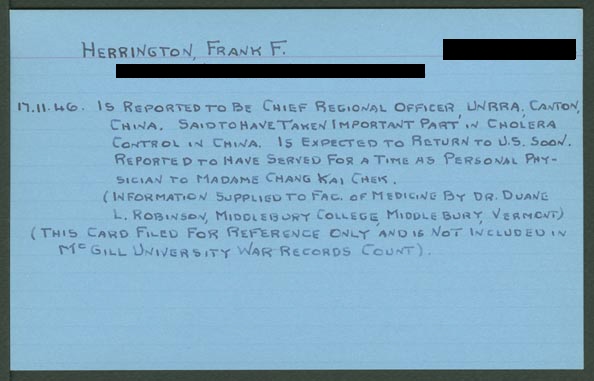 HERRINGTON, FRANK F.
17.11.46. IS REPORTED TO BE CHIEF REGIONAL OFFICER, UNRRA, CANTON,
CHINA. SAID TO HAVE TAKEN IMPORTANT PART IN CHOLERA
CONTROL IN CHINA. IS EXPECTED TO RETURN TO U.S. SOON.
REPORTED TO HAVE SERVED FOR A TIME AS PERSONAL PHY-
SICIAN TO MADAME CHANG KAI CHEK.
(INFORMATION SUPPLIED TO FAC. OF MEDICINE BY DR. DUANE
L. ROBINSON, MIDDLEBURY COLLEGE, MIDDLEBURY, VERMONT)
(THIS CARD FILED FOR REFERENCE ONLY AND IS NOT INCLUDED IN
MCGILL UNIVERSITY WAR RECORDS COUNT).